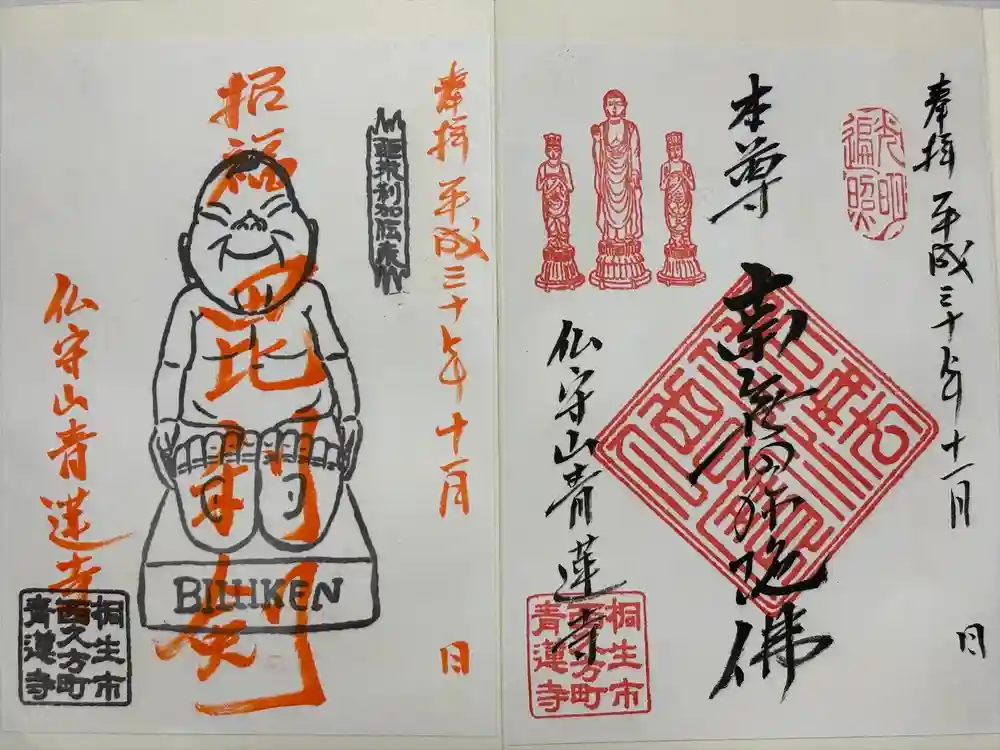 奉拝 平成三十年十一月 日
光明
遍照
本尊
南無阿弥陀佛
仏守山青蓮寺
桐生市
西久方町
青蓮寺
奉拝 平成三十年十一月 日
亜米利加伝来
招福 毘利剣
BILLIKEN
仏守山青蓮寺
桐生市
西久方町
青蓮寺